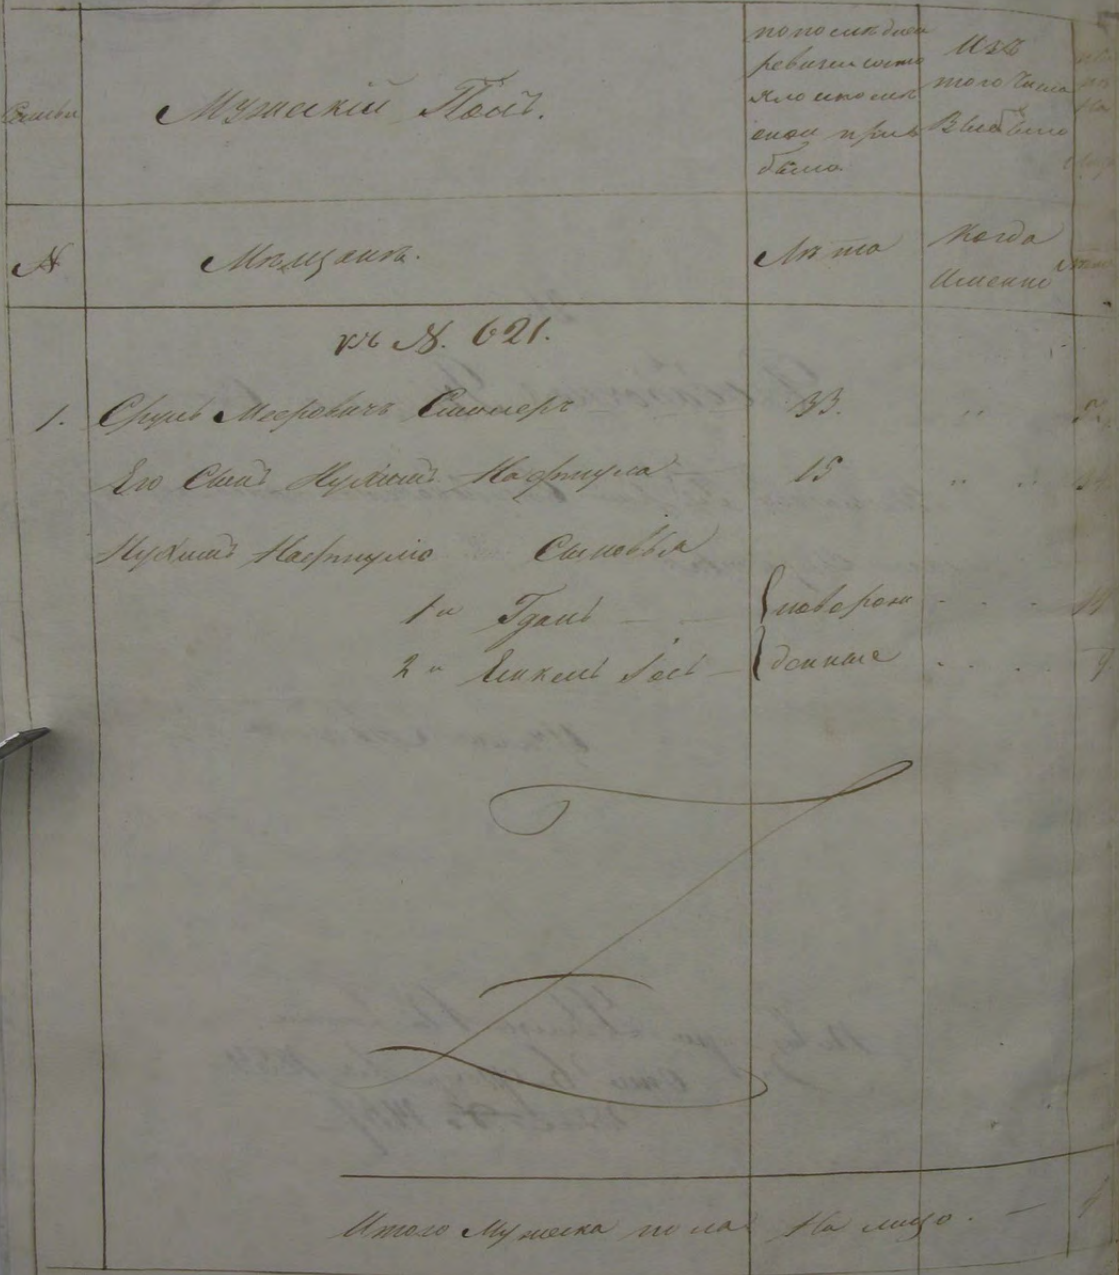 Семьи
Мужескій Полъ.
по последней
ревизіи состо
яло и после
оной при
было.
Изъ
того Числа
Выбыло
№
Мѣщанѣ.
Лѣта
Когда
Именно
къ №. 621.
1. Сруль Мееровичъ 33.
Его Сынъ Нухимъ Нафтула 15
Нухимъ Нафтулы Сыновья
1й новорож
2й Янкель денные
Итого Мужеска пола На лицо. —